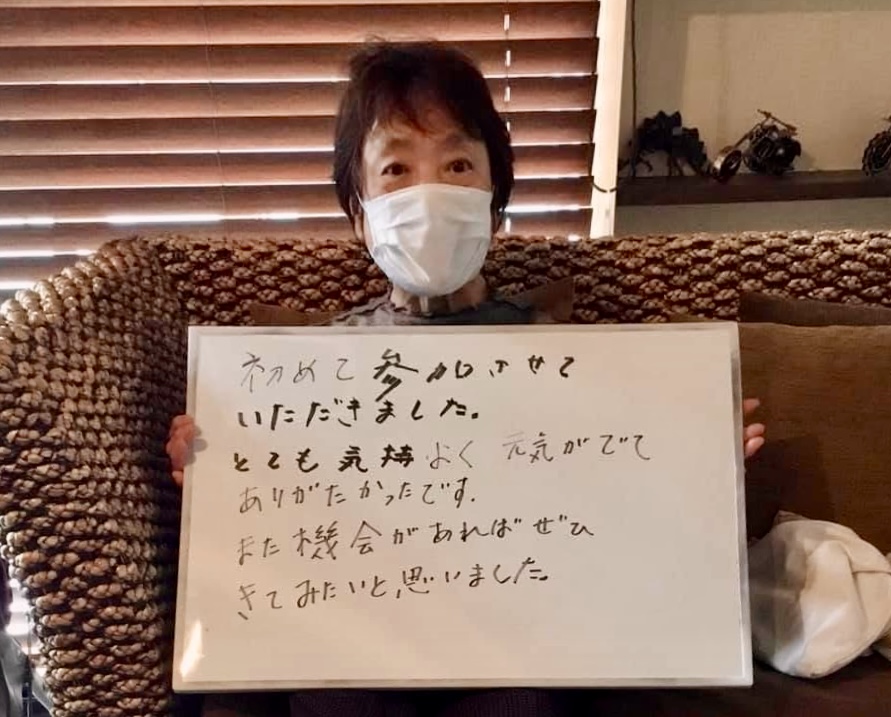 初めて参加させて
いただきました。
とても気持よく 元気がでて
ありがたかったです.
また機会があればぜひ
きてみたいと思いました。